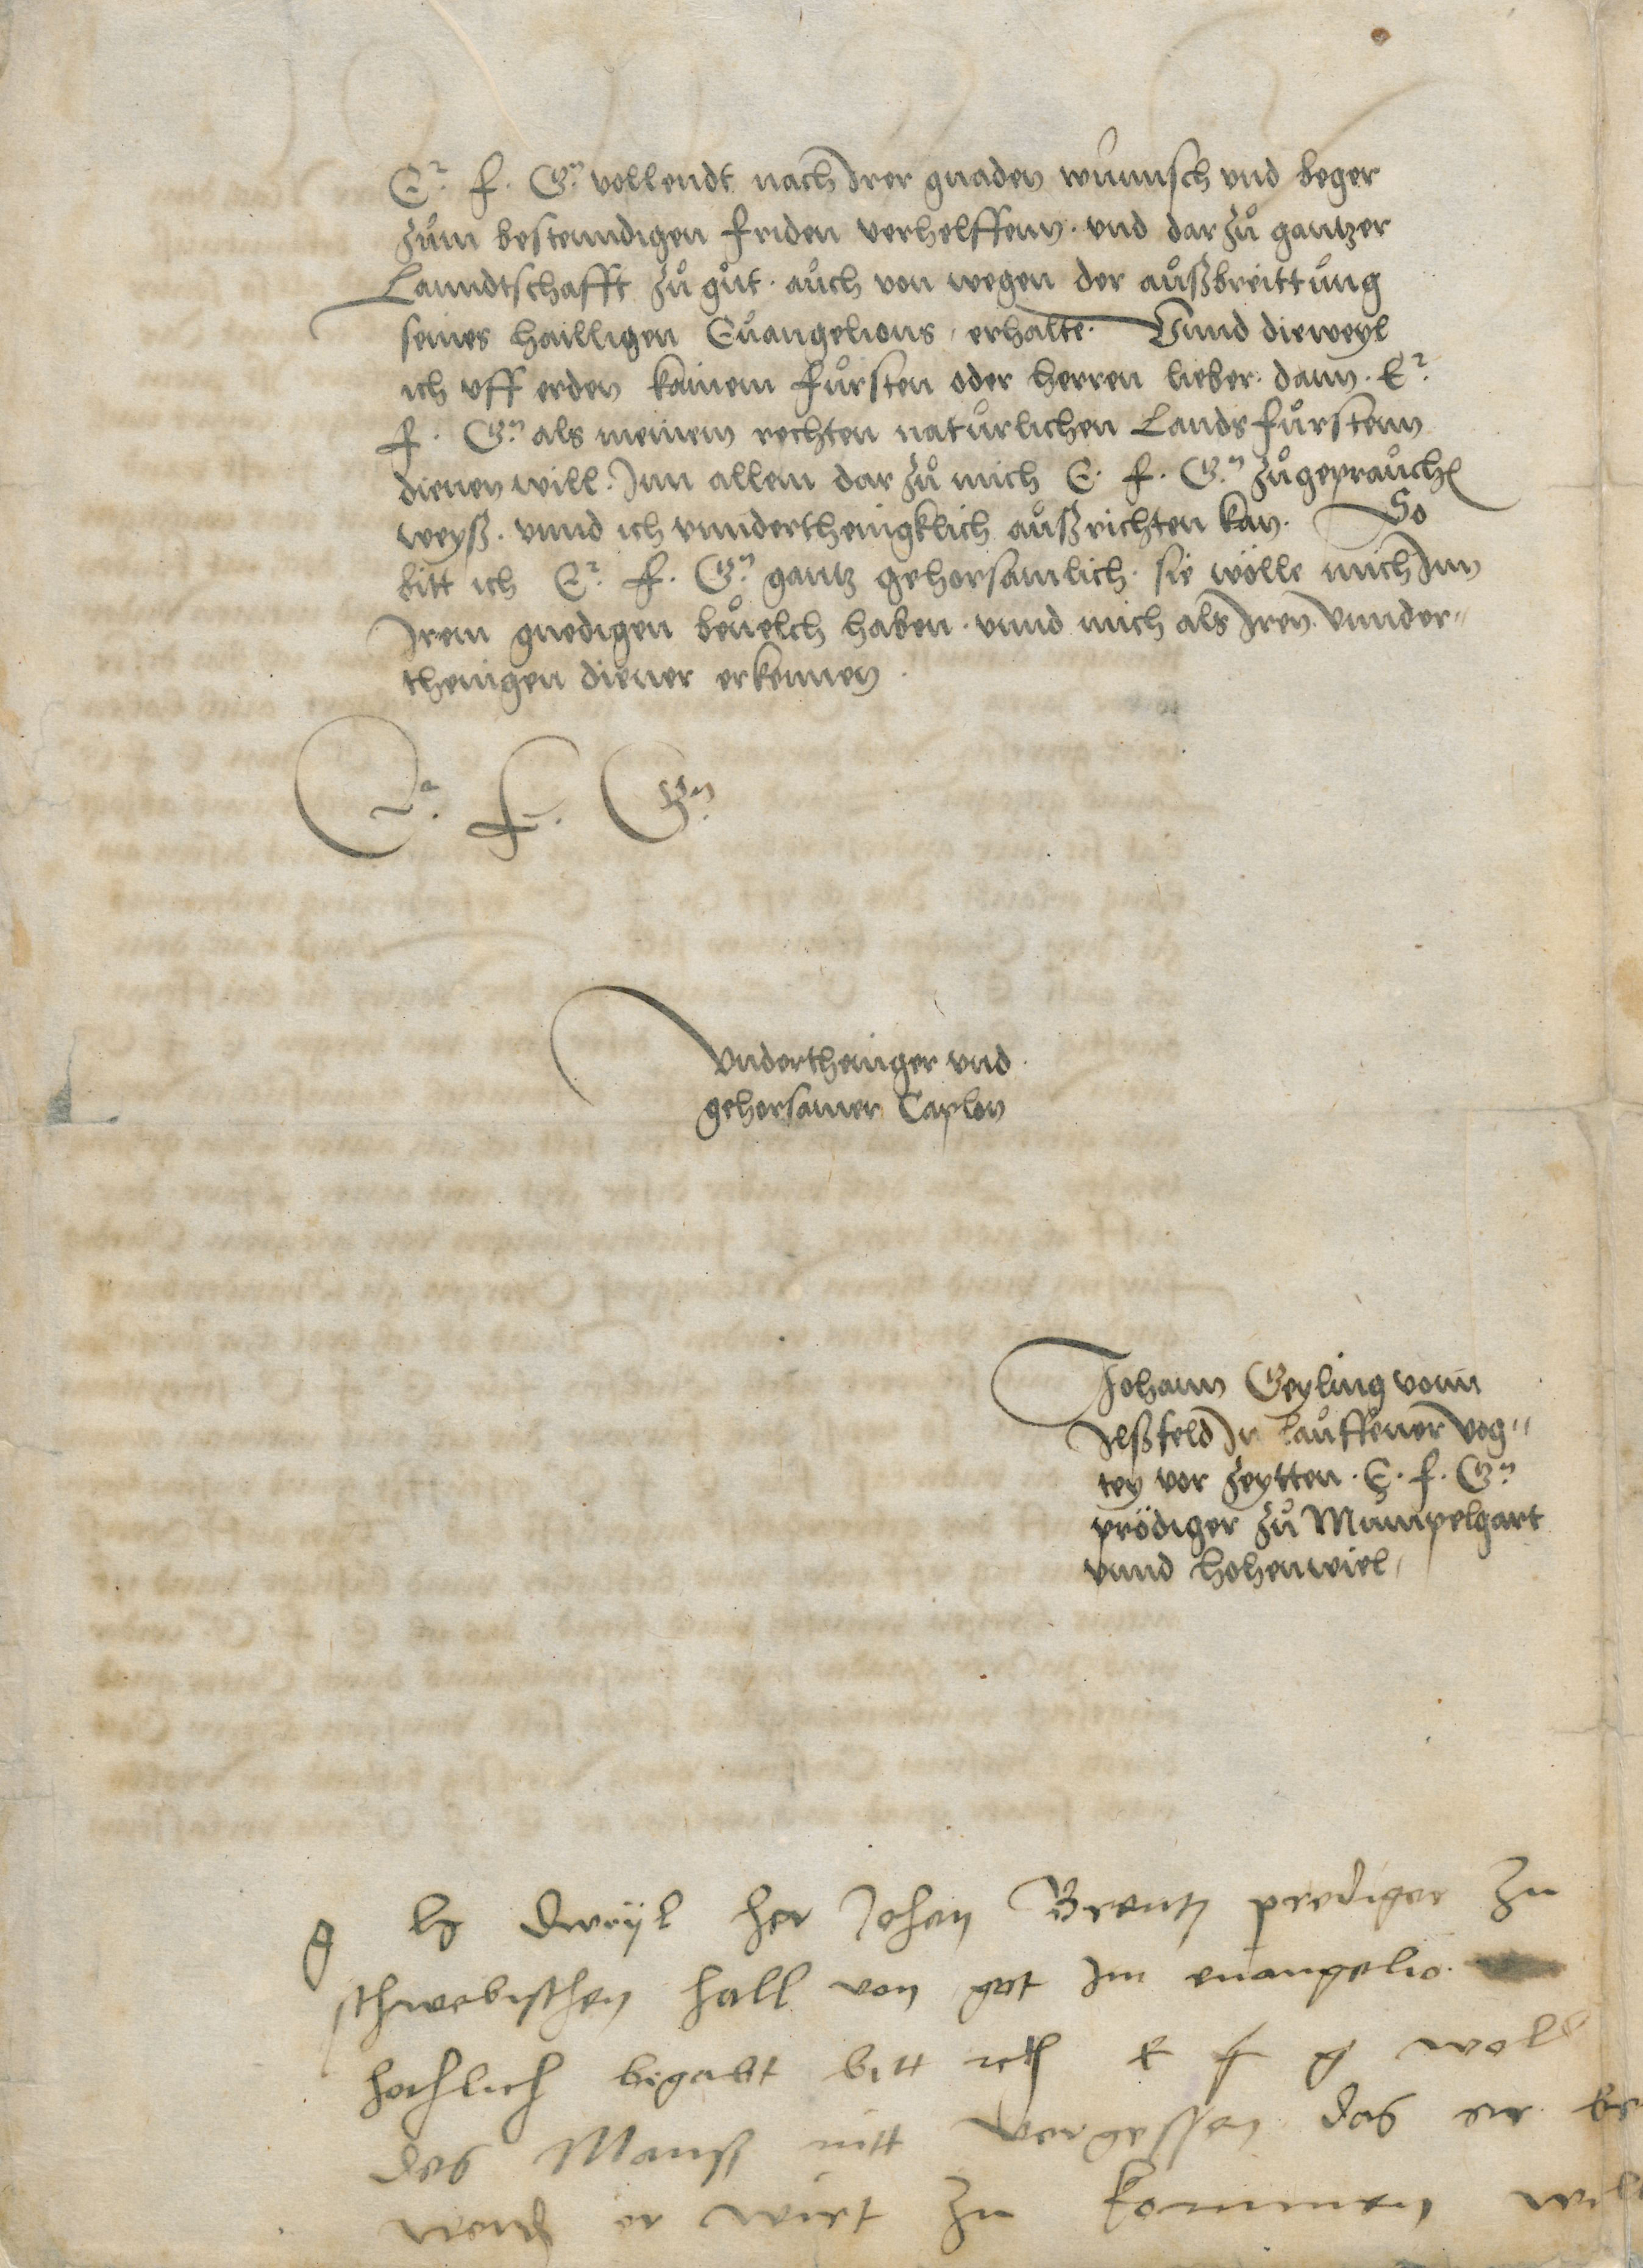 Er. f. Gn. vollendt nach Irer gnaden wunnsch vnd beger
zům bestenndigen friden verhelffenn. vnd darzů gantzer
Lanndtschafft zů gůt. aůch von wegen der aůßbreittůng
seines hailligen Eůangelions, erhalte. Vnnd dieweyl
ich vff erden kainem fůrsten oder herren lieber. dann. Er.
f. Gn. als meinem rechten natůrlichen Landsfůrstenn
dienen will. Inn allem darzů mich E. f. Gn. zůgepraůchen
weyß. vnnd ich vnnderthenigklich aůßrichten kan. So
bitt ich Er. f. Gn. gantz gehorsamlich. sie wölle mich Inn
Irem gnedigen beůelch haben. vnnd mich als Iren vnnder„
thenigen diener erkennen.
Er. f. Gn.
Vndertheniger vnd
gehorsamer Caplon
Johann Geyling vonn
Ilßfeld In Laůffener vog„
tey vor zeytten. E. f. Gn.
prödiger zů Můmpelgart
vnnd hohenwiel.
g h dweyl her Johan Brentz prediger zu
schwebischen hall von got Im euangelio
hochlich begabt bitt ich e f g wol
des Manß nitt vergessen das er be
er wirt zu kommen